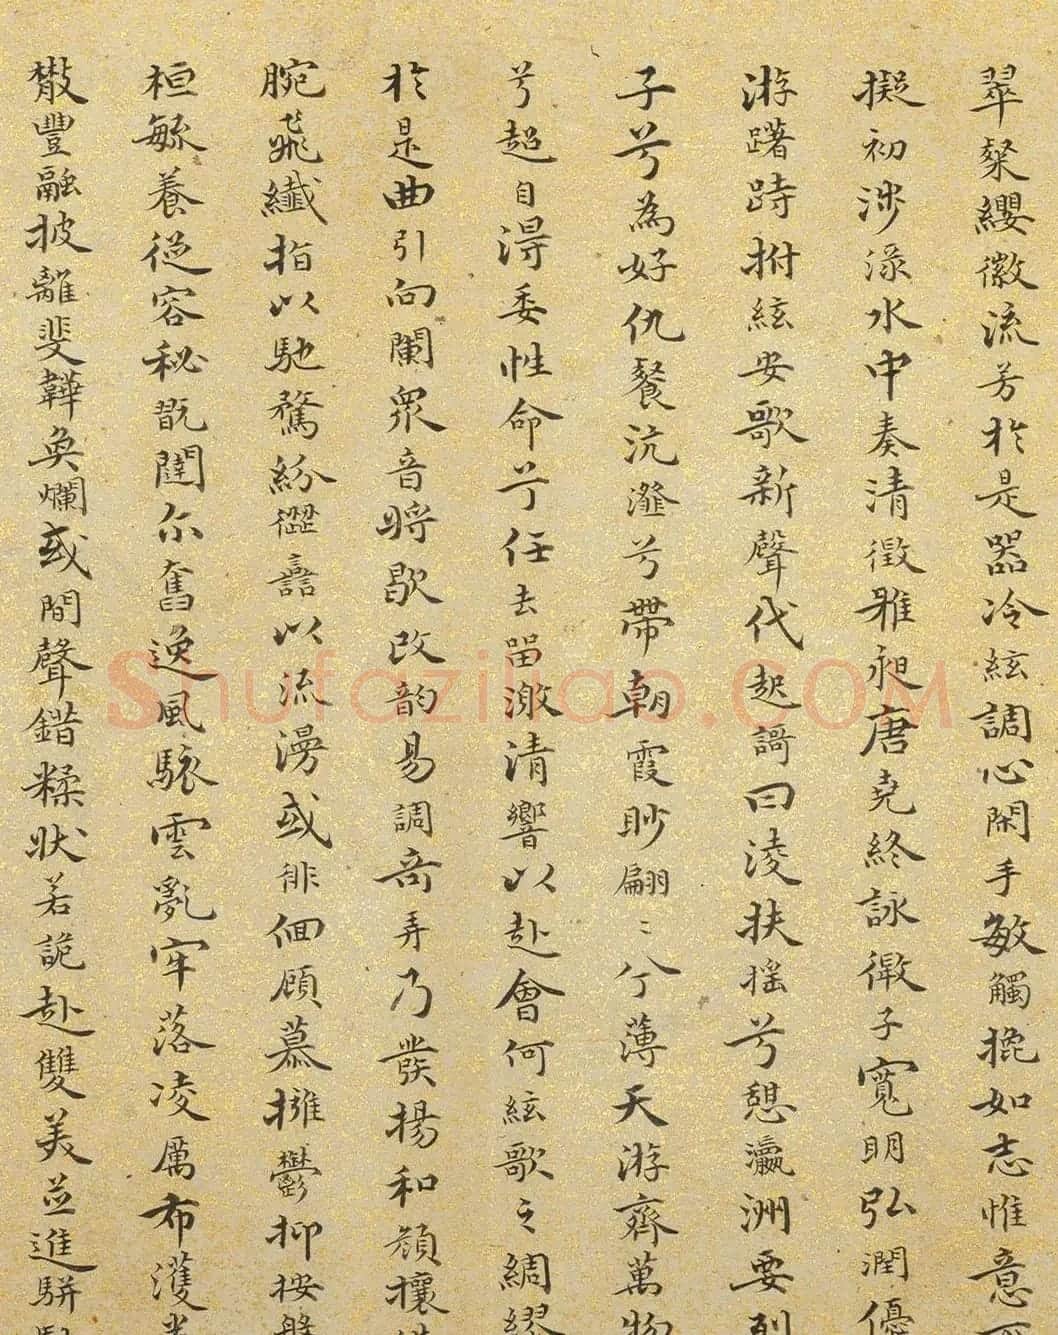 翠粲纓徽流芳於是器冷絃調心閑手敏觸㧓如志惟意
擬初涉淥水中奏清徵雅昶唐堯終詠微子寬明弘潤優
游躇跱拊絃安歌新聲代起謌曰淩扶摇兮憩瀛洲要列
子兮為好仇餐沆瀣兮帶朝霞眇翩〻兮薄天游齊萬物
兮超自淂委性命兮任去留激清響以赴會何絃歌之綢繆
於是曲引向闌衆音將歇改韵易調奇弄乃發揚和顏攘
腕飛纖指以馳騖紛澀譶以流漫或徘徊顧慕擁鬱抑按盤
桓毓養従容秘翫闥尓奮逸風駭雲亂牢落凌厲布濩半
散豐融披離斐韡奐爛或間聲錯糅狀若詭赴雙美並進駢馳
Shufaziliao.com